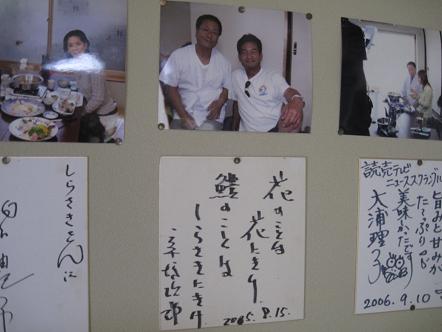 しらさきさんに
花のことは
花にきけ
鱧のことは
しらさきにきけ
2005.8.15.
読売テレビ
ニューススクランブル
旨味と甘みが
たっぷりで
美味かったです
大浦理子
2006.9.10